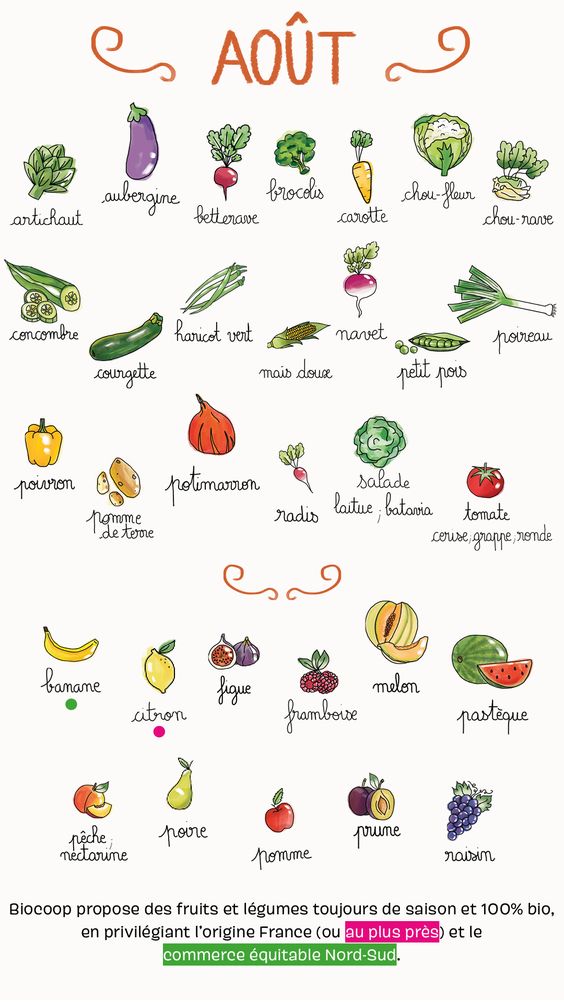 AOÛT
artichaut
aubergine
betterave
brocolis
carotte
chou-fleur
chou-rave
concombre
courgette
haricot vert
maïs doux
navet
petit pois
poireau
poivron
pomme
de terre
potimarron
radis
salade
laitue ; batavia
tomate
cerise, grappe, ronde
banane
citron
figue
framboise
melon
pastèque
pêche ;
nectarine
poire
pomme
prune
raisin
Biocoop propose des fruits et légumes toujours de saison et 100% bio,
en privilégiant l'origine France (ou au plus près) et le
commerce équitable Nord-Sud.